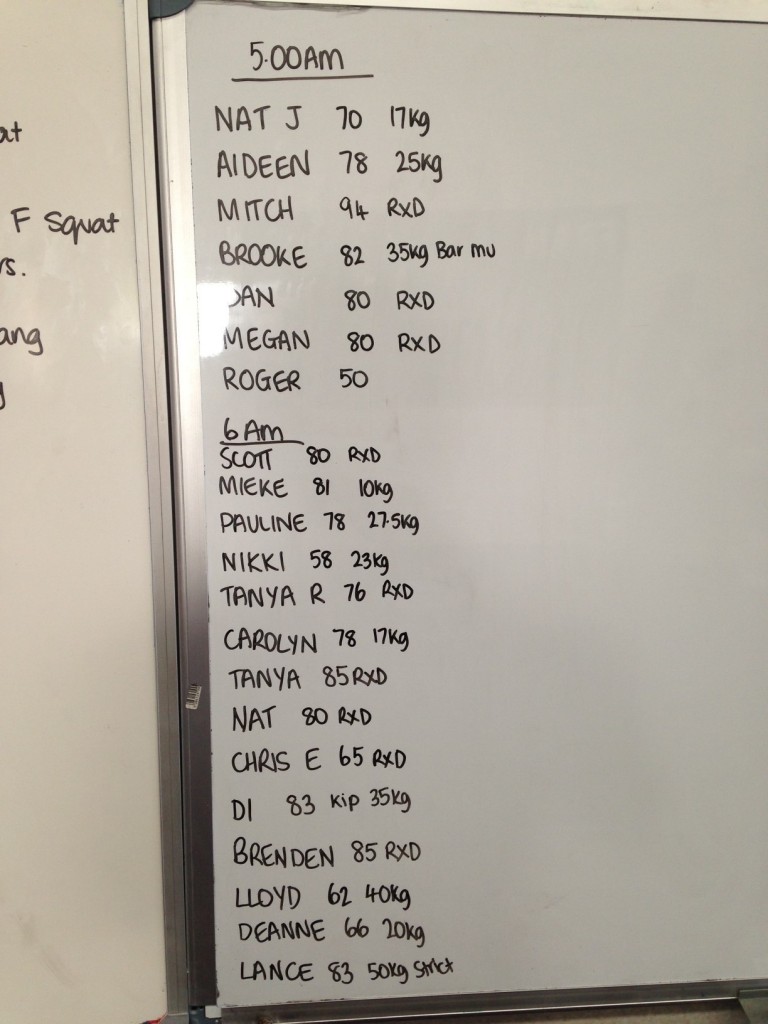 at
F Squat
rs.
ang
5.00AM
NAT J 70 17kg
AIDEEN 78 25kg
MITCH 94 RXD
BROOKE 82 35kg Bar mu
DAN 80 RXD
MEGAN 80 RXD
ROGER 50
6 Am
SCOTT 80 RXD
MIEKE 81 10kg
PAULINE 78 27.5kg
NIKKI 58 23kg
TANYA R 76 RXD
CAROLYN 78 17kg
TANYA 85 RXD
NAT 80 RXD
CHRIS E 65 RXD
DI 83 Kip 35kg
BRENDEN 85 RXD
LLOYD 62 40kg
DEANNE 66 20kg
LANCE 83 50kg Strict